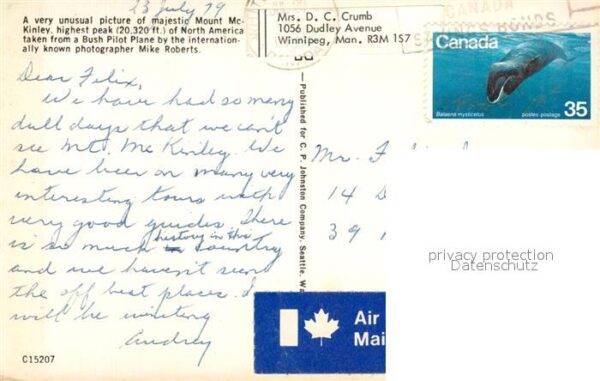 23 July 79
A very unusual picture of majestic Mount Mc-
Kinley, highest peak (20,320 ft.) of North America
taken from a Bush Pilot Plane by the internation-
ally known photographer Mike Roberts.
Dear Felix,
We have had so many
dull days that we can't
see Mt. McKinley. We
have been on many very
interesting tours with
very good guides. There
is so much history in this country
and we haven't seen
the off beat places. I
will be writing
Audrey
C15207
Published for C. P. Johnston Company, Seattle, Wa
Mrs. D. C. Crumb
1056 Dudley Avenue
Winnipeg, Man. R3M 1S7
CANADA
BONDS
Canada
35
Balaena mysticetus
postes postage
Mr. F
14 D
39
privacy protection
Datenschutz
Air
Mai